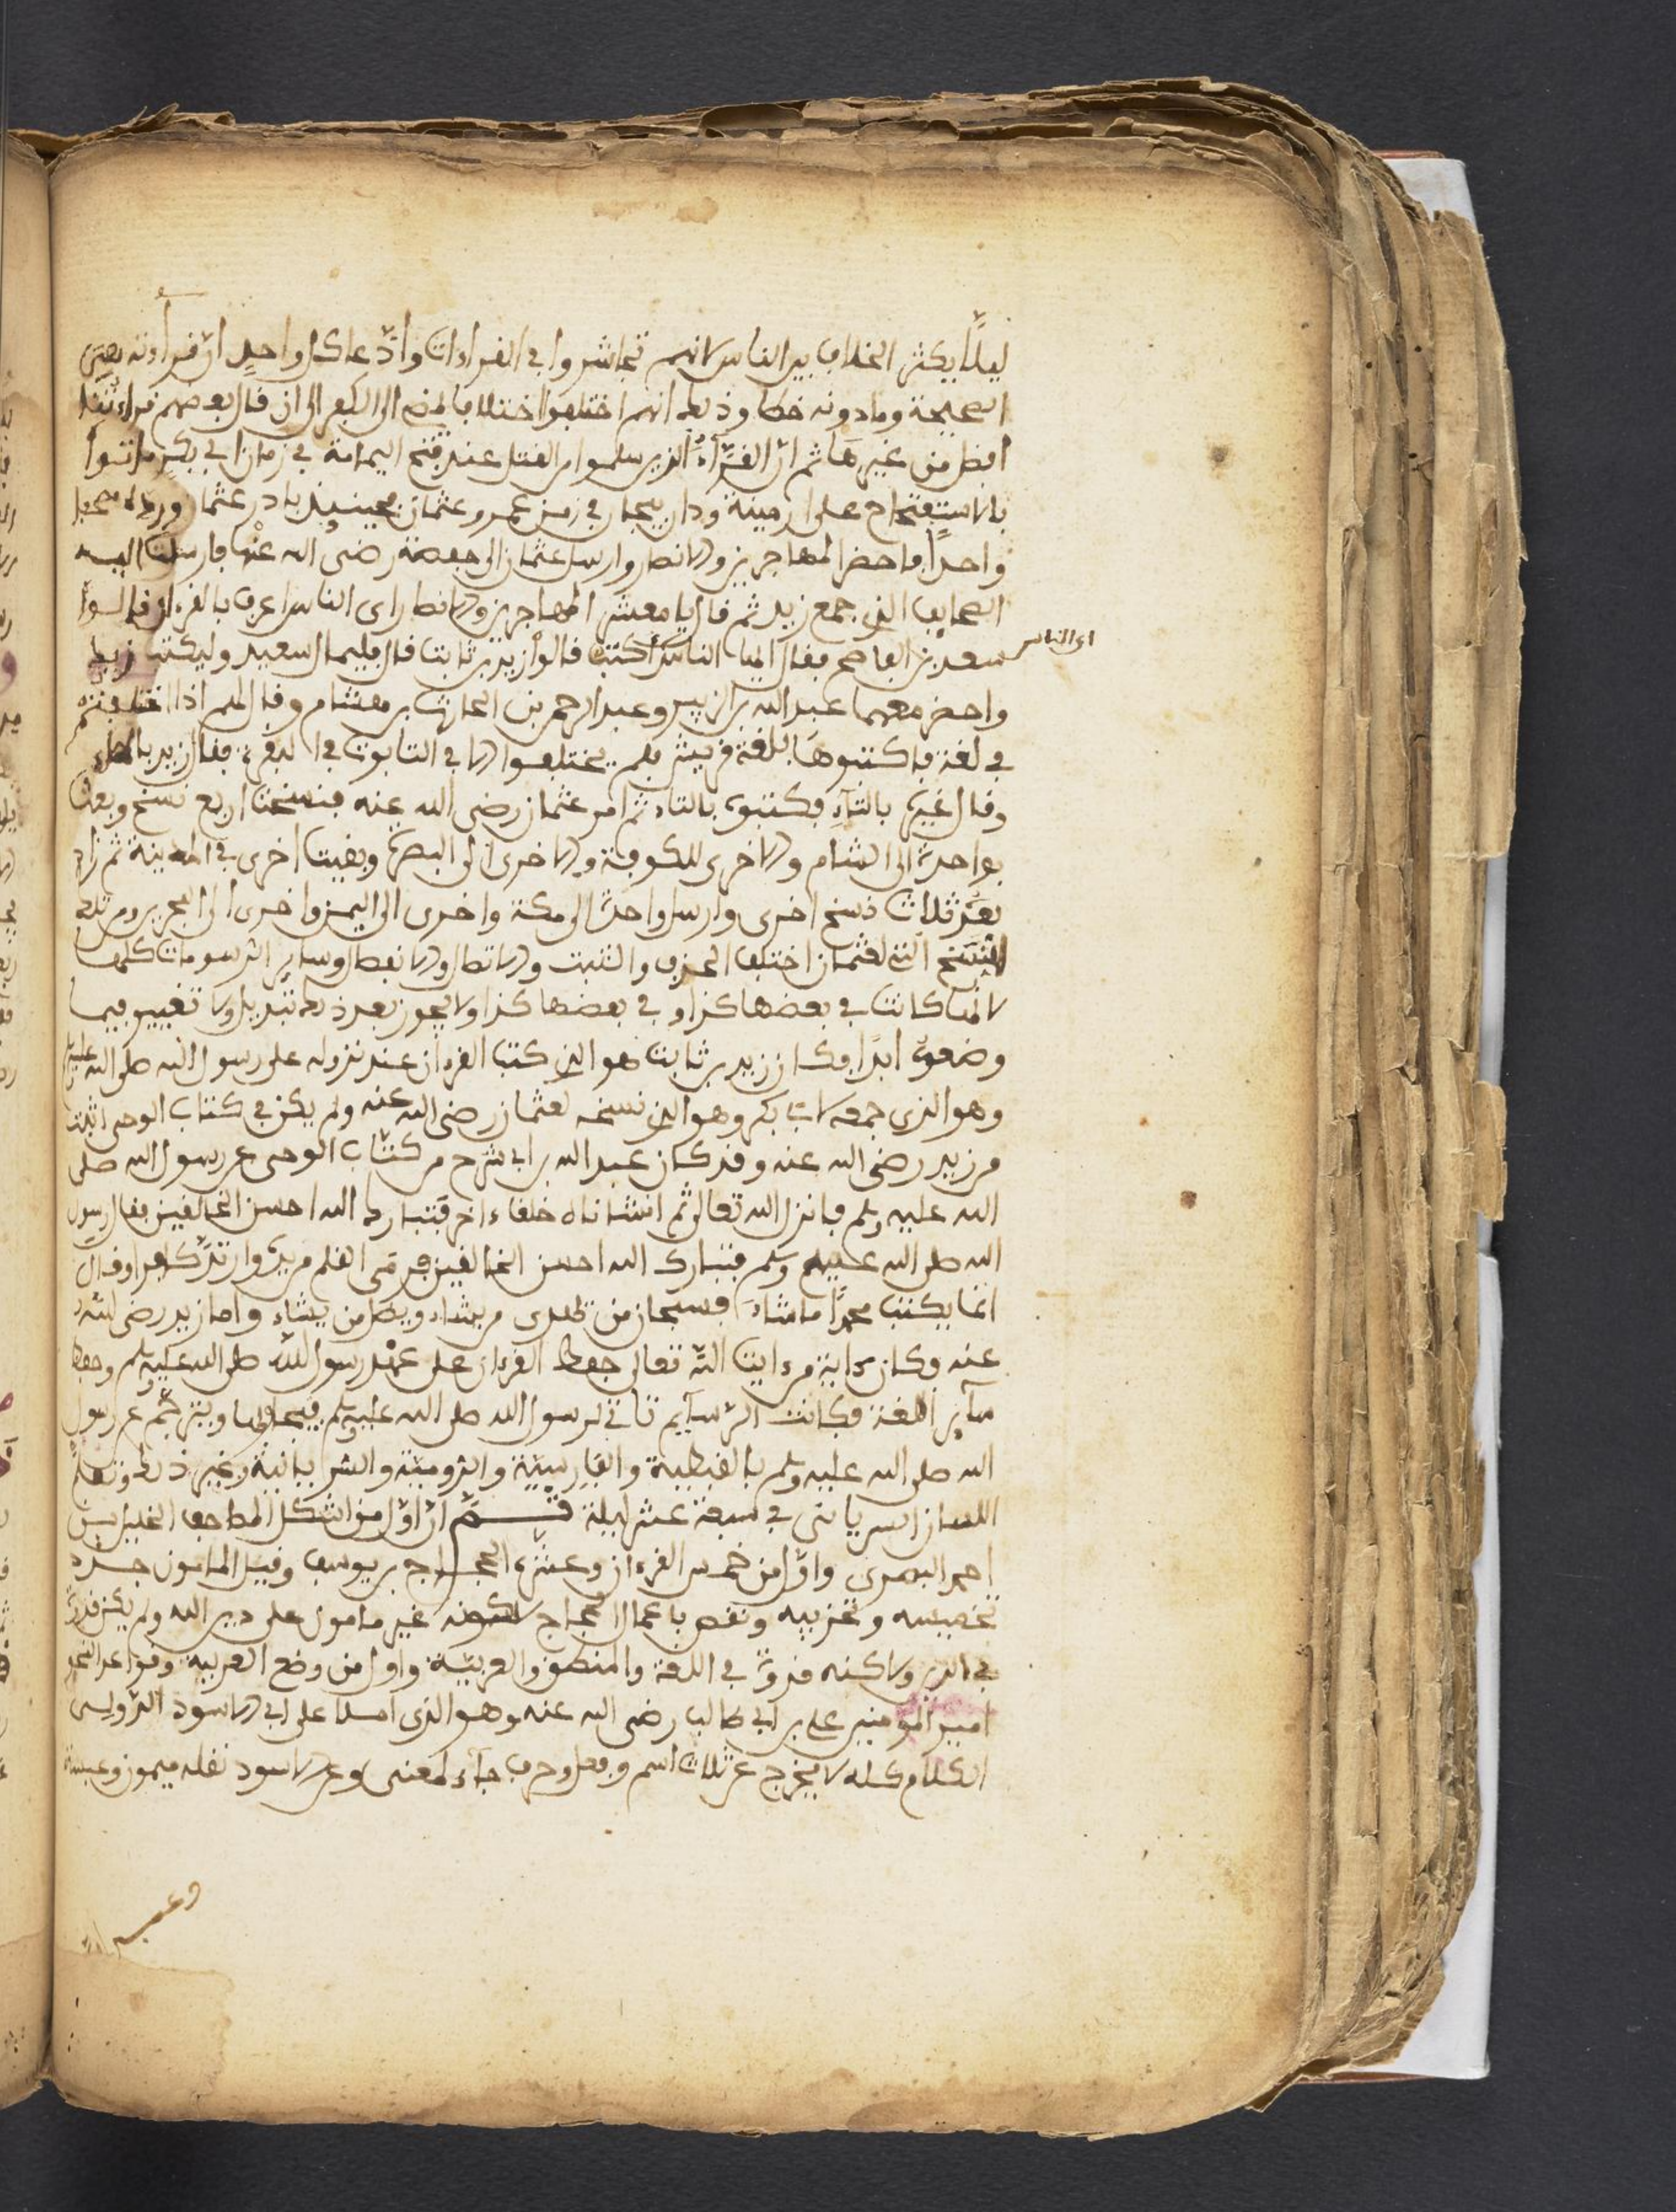 ليلا يكثر الخلاف بين الناس لانهم تجاشروا في القراءات وادّعا كل واحد ان قراءته هي
الصحيحة وما دونه خطا وذلك انهم اختلفوا اختلافا الى الكفر الى ان قال بعضهم قراءتنا
افضل من غيرها ثم ان القراء الذين سلموا من القتل عند فتح اليمامة في زمان ابي بكر ماتوا
بالاستفتاح على ارمينة وداربيجان في زمن عمر وعثمان فحينئذ بادر عثمان
واحدا فاحضر المهاجرين والانصار وارسل عثمان الى حفصة رضي الله عنها فارسلت اليه
الصحايف التي جمع زيد ثم قال يا معشر المهاجرين والانصار اي الناس اعرف بالقرءان قالوا
سعد بن العاصي فقال اي الناس اكتب قالوا زيد بن ثابت قال فليمل سعيد وليكتب زيد
اي الناس
واحضر معهما عبد الله بن الزبير وعبد الرحمن بن الحارث بن هشام وقال لهم اذا اختلفتم
في لغة فاكتبوها بلغة قريش فلم يختلفوا الا في التابوت في البقرة فقال زيد بالهاء
وقال غيره بالتاء فكتبوه بالتاء ثم امر عثمان رضي الله عنه فنسخت اربع نسخ وبعث
بواحدة الى الشام والاخرى للكوفة والاخرى الى البصرة وبقيت اخرى في المدينة ثم زاد
بعد ثلاث نسخ اخرى وارسل واحدة الى مكة واخرى الى اليمن واخرى الى البحرين ومن تلك
النسخ التي لعثمان اختلف الحذف والثبت والاتصال والانفصال وساير الرسومات كلها
لانها كانت في بعضها كذا وفي بعضها كذا ولا يجوز بعد ذلك تبديل ولا تغيير فيما
وضعوه ابدا فكان زيد بن ثابت هو الذي كتب القرءان عند نزوله على رسول الله صلى الله عليه وسلم
وهو الذي جمعه لابي بكر وهو الذي نسخه لعثمان رضي الله عنه ولم يكن في كتاب الوحي اثبت
من زيد رضي الله عنه وقد كان عبد الله بن ابي شرح من كتاب الوحي عن رسول الله صلى
الله عليه وسلم فانزل الله تعالى ثم انشاناه خلقا ءاخر فتبارك الله احسن الخالقين فقال رسول
الله صلى الله عليه وسلم فتبارك الله احسن الخالقين فرمى القلم من يده وارتد كافرا وقال
انما يكتب محمدا ما شاء فسبحان من يهدى من يشاء ويضل من يشاء واما زيد رضي الله
عنه وكان ءاية من ءايت الله تعالى حفظ القرءان على عهد رسول الله صلى الله عليه وسلم وحفظ
ساير اللغة وكانت الرسايم تاتي لرسول الله صلى الله عليه وسلم ويترجم عن رسول
الله صلى الله عليه وسلم بالقبطية والفارسية والرومية والشريانية وغير ذلك وتعلم
اللسان السرياني في سبعة عشر ليلة ثم ان اول من اشكل المصاحف الخليل بن
احمد البصري واول من خمس القرءان وعشره الحجاج بن يوسف وقيل المامون جزه
تخميسه وتحزيبه ونقص باعمال الحجاج لكونه غير مامون على دين الله ولم يكن قدوة
في الدين ولاكنه قدوة في اللغة والمنطق والعربية واول من وضع العربية وقواعد النحو
امير المومنين علي بن ابي طالب رضي الله عنه وهو الذي املا على ابي الاسود الدؤلي
الكلام كله لا يخرج عن ثلاث اسم وفعل وحرف جاء لمعنى وعن الاسود نقله ميمون وعبسة
وعبسة